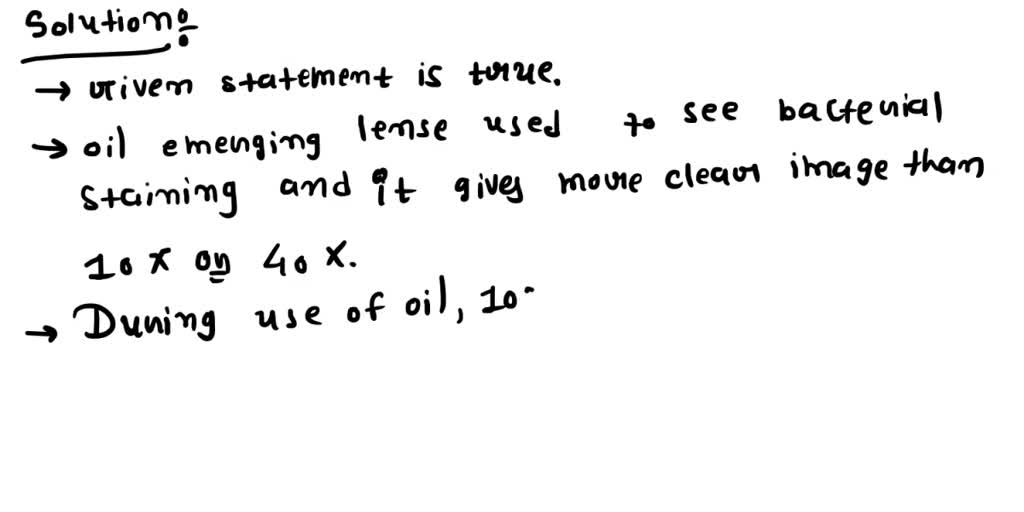 Solution:
→ Given statement is true.
→ oil emerging lense used to see bacterial
staining and it gives more clear image than
10x or 40x.
→ During use of oil, 10